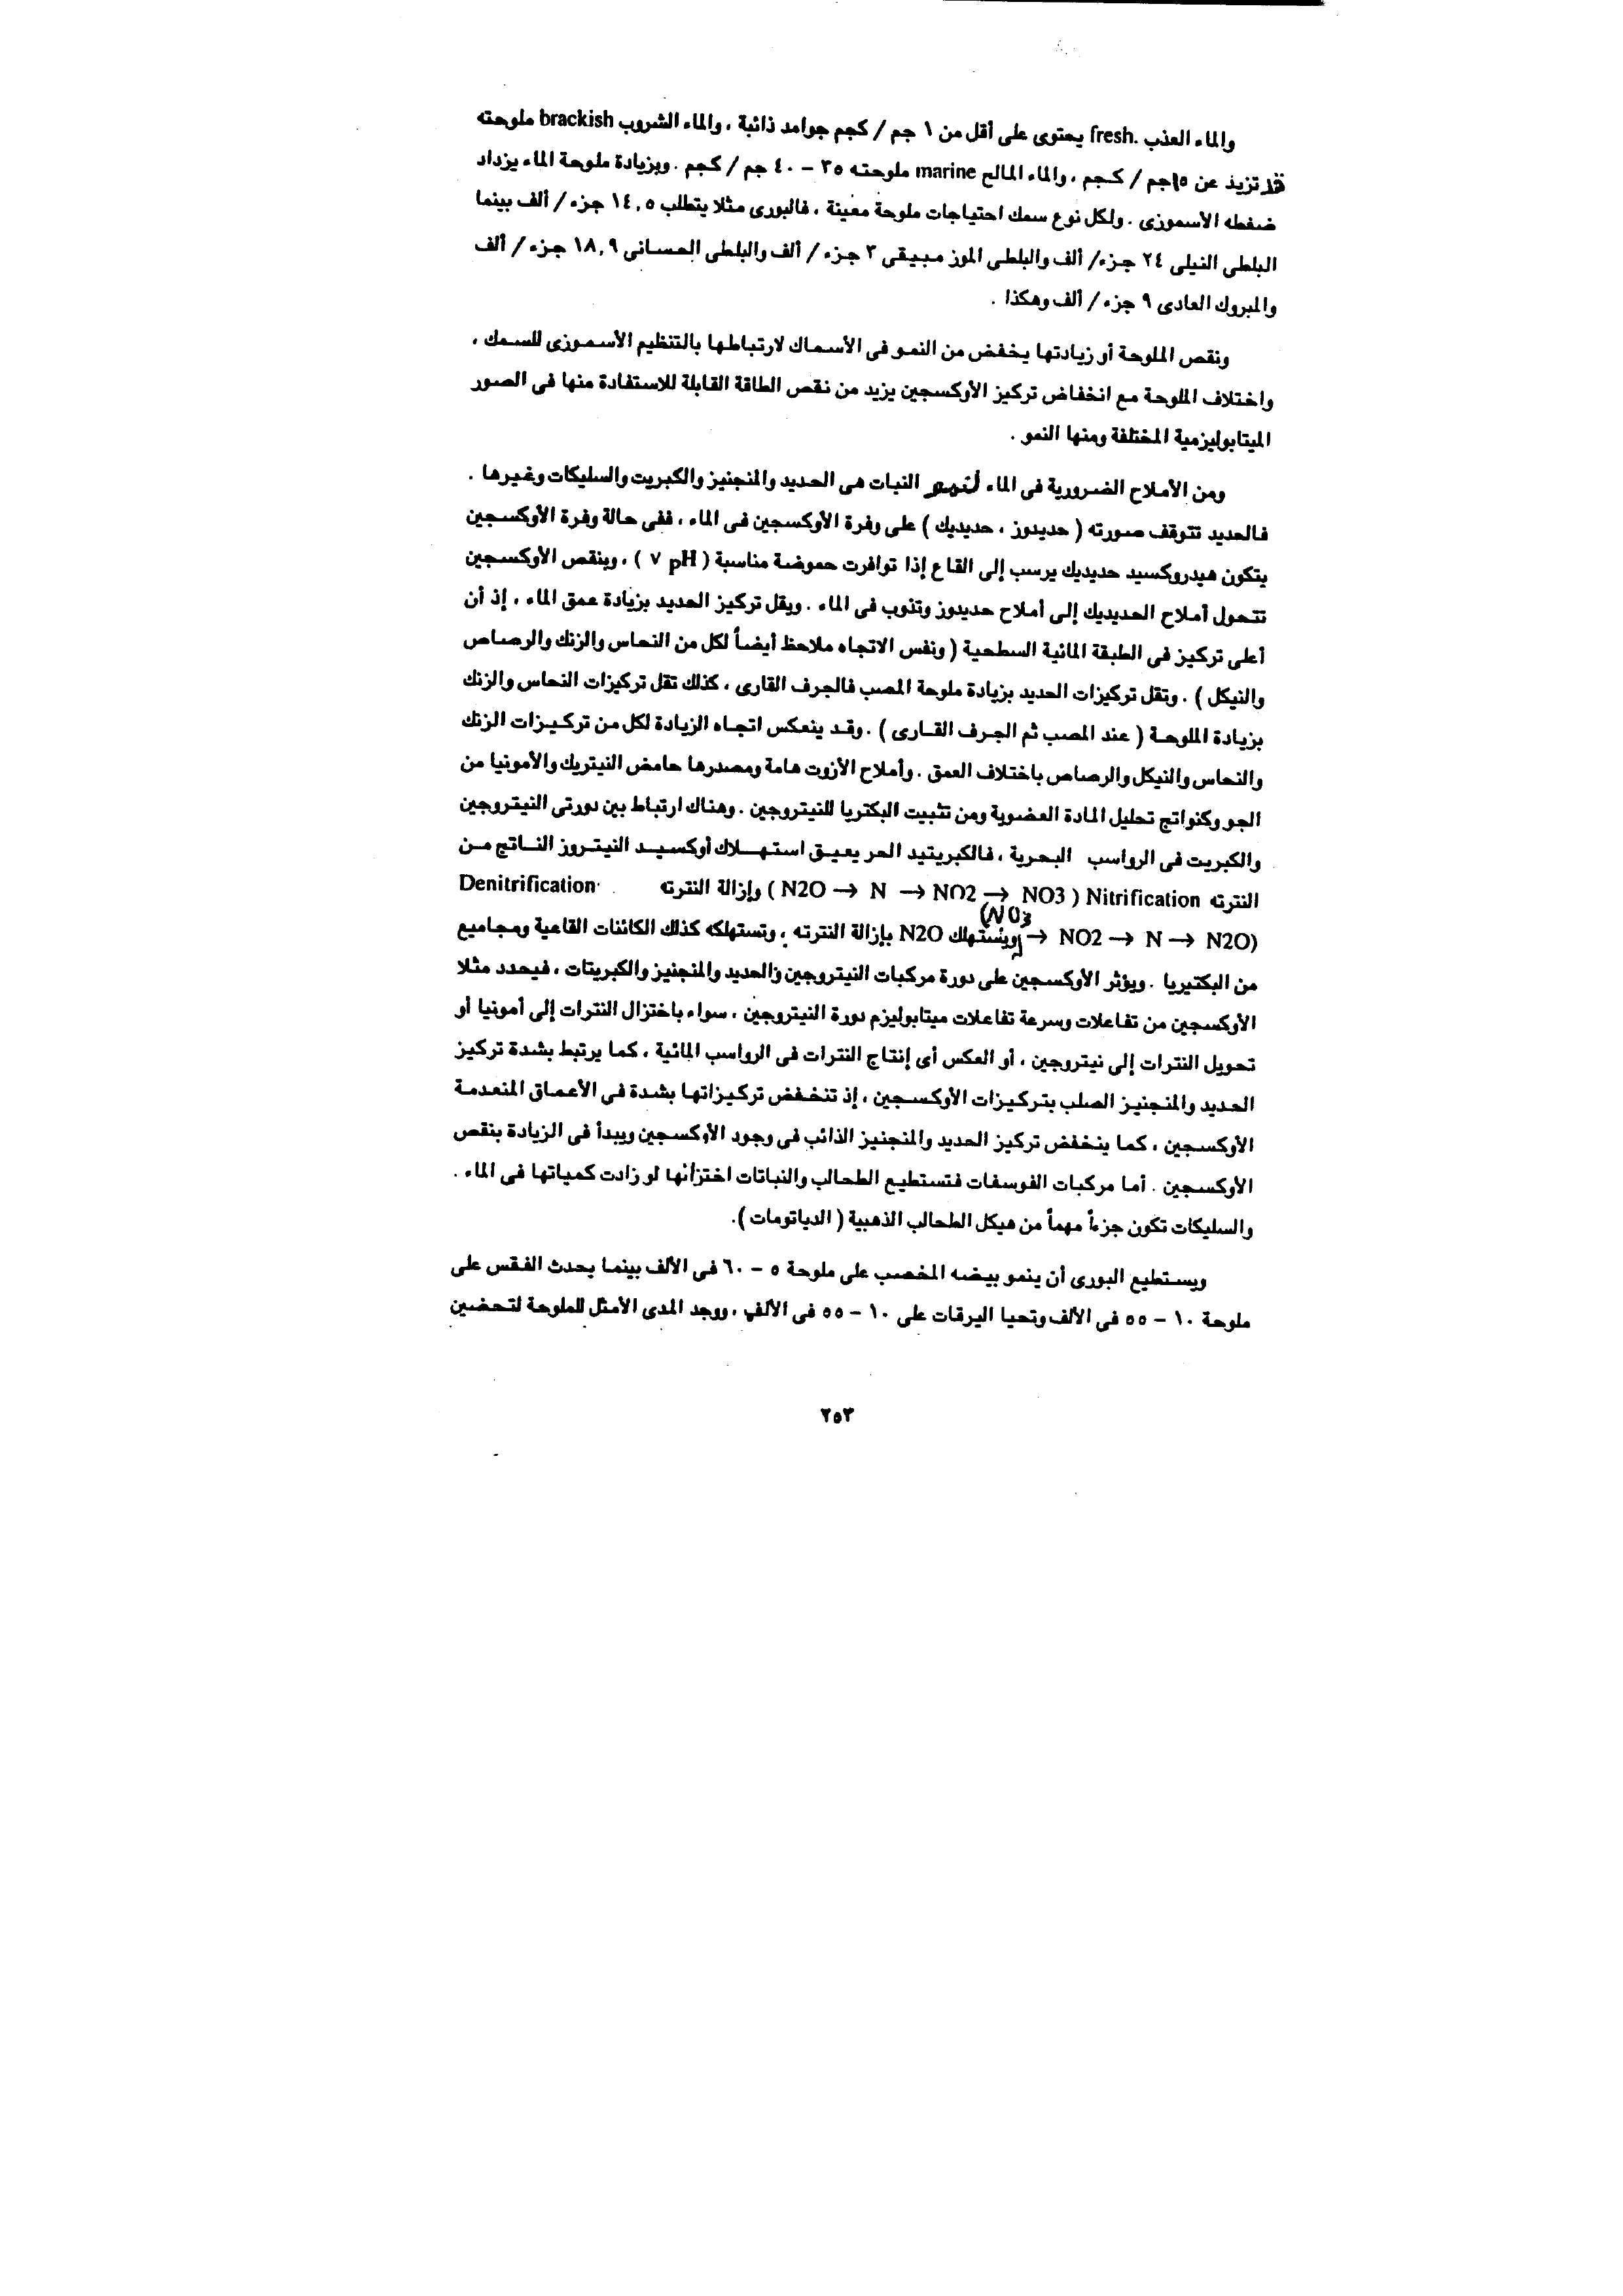 والماء العذب .fresh يحتوى على أقل من ١ جم / كجم جوامد ذائبة ، والماء الشروب brackish ملوحته
قد تزيد عن ١٥جم / كجم ، والماء المالح marine ملوحته ٣٥ – ٤٠ جم / كجم . وبزيادة ملوحة الماء يزداد
ضغطه الأسموزى . ولكل نوع سمك احتياجات ملوحة معينة ، فالبورى مثلا يتطلب ١٤,٥ جزء / ألف بينما
البلطى النيلى ٢٤ جزء/ ألف والبلطى الموزمبيقى ٣ جزء / ألف والبلطى الحسانى ١٨,٩ جزء / ألف
والمبروك العادى ٩ جزء / ألف وهكذا .
ونقص الملوحة أو زيادتها يخفض من النمو فى الأسماك لارتباطها بالتنظيم الأسموزى للسمك ،
واختلاف الملوحة مع انخفاض تركيز الأوكسجين يزيد من نقص الطاقة القابلة للاستفادة منها فى الصور
الميتابوليزمية المختلفة ومنها النمو .
ومن الأملاح الضرورية فى الماء لنمو النبات هى الحديد والمنجنيز والكبريت والسليكات وغيرها .
فالحديد تتوقف صورته ( حديدوز ، حديديك ) على وفرة الأوكسجين فى الماء ، ففى حالة وفرة الأوكسجين
يتكون هيدروكسيد حديديك يرسب إلى القاع إذا توافرت حموضة مناسبة ( pH ٧ ) ، وبنقص الأوكسجين
تتحول أملاح الحديديك إلى أملاح حديدوز وتذوب فى الماء . ويقل تركيز الحديد بزيادة عمق الماء ، إذ أن
أعلى تركيز فى الطبقة المائية السطحية ( ونفس الاتجاه ملاحظ أيضاً لكل من النحاس والزنك والرصاص
والنيكل ) . وتقل تركيزات الحديد بزيادة ملوحة المصب فالجرف القارى ، كذلك تقل تركيزات النحاس والزنك
بزيادة الملوحة ( عند المصب ثم الجرف القارى ) . وقد ينعكس اتجاه الزيادة لكل من تركيزات الزنك
والنحاس والنيكل والرصاص باختلاف العمق . وأملاح الأزوت هامة ومصدرها حامض النيتريك والأمونيا من
الجو وكنواتج تحليل المادة العضوية ومن تثبيت البكتريا للنيتروجين . وهناك ارتباط بين دورتى النيتروجين
والكبريت فى الرواسب البحرية ، فالكبريتيد الحر يعيق استهلاك أوكسيد النيتروز الناتج من
النترته Nitrification ( N2O → N → NO2 → NO3 ) وإزالة النترته Denitrification
(NO3 → NO2 → N → N2O) ويستهلك N2O بإزالة النترته ، وتستهلكه كذلك الكائنات القاعية ومجاميع
من البكتيريا . ويؤثر الأوكسجين على دورة مركبات النيتروجين والحديد والمنجنيز والكبريتات ، فيحدد مثلا
الأوكسجين من تفاعلات وسرعة تفاعلات ميتابوليزم دورة النيتروجين ، سواء باختزال النترات إلى أمونيا أو
تحويل النترات إلى نيتروجين ، أو العكس أى إنتاج النترات فى الرواسب المائية ، كما يرتبط بشدة تركيز
الحديد والمنجنيز الصلب بتركيزات الأوكسجين ، إذ تنخفض تركيزاتها بشدة فى الأعماق المنعدمة
الأوكسجين ، كما ينخفض تركيز الحديد والمنجنيز الذائب فى وجود الأوكسجين ويبدأ فى الزيادة بنقص
الأوكسجين . أما مركبات الفوسفات فتستطيع الطحالب والنباتات اختزانها لو زادت كمياتها فى الماء .
والسليكات تكون جزءاً مهماً من هيكل الطحالب الذهبية ( الدياتومات ).
ويستطيع البورى أن ينمو بيضه المخصب على ملوحة ٥ – ٦٠ فى الألف بينما يحدث الفقس على
ملوحة ١٠ – ٥٥ فى الألف وتحيا اليرقات على ١٠ – ٥٥ فى الألف ، ووجد المدى الأمثل للملوحة لتحضين
٢٥٣